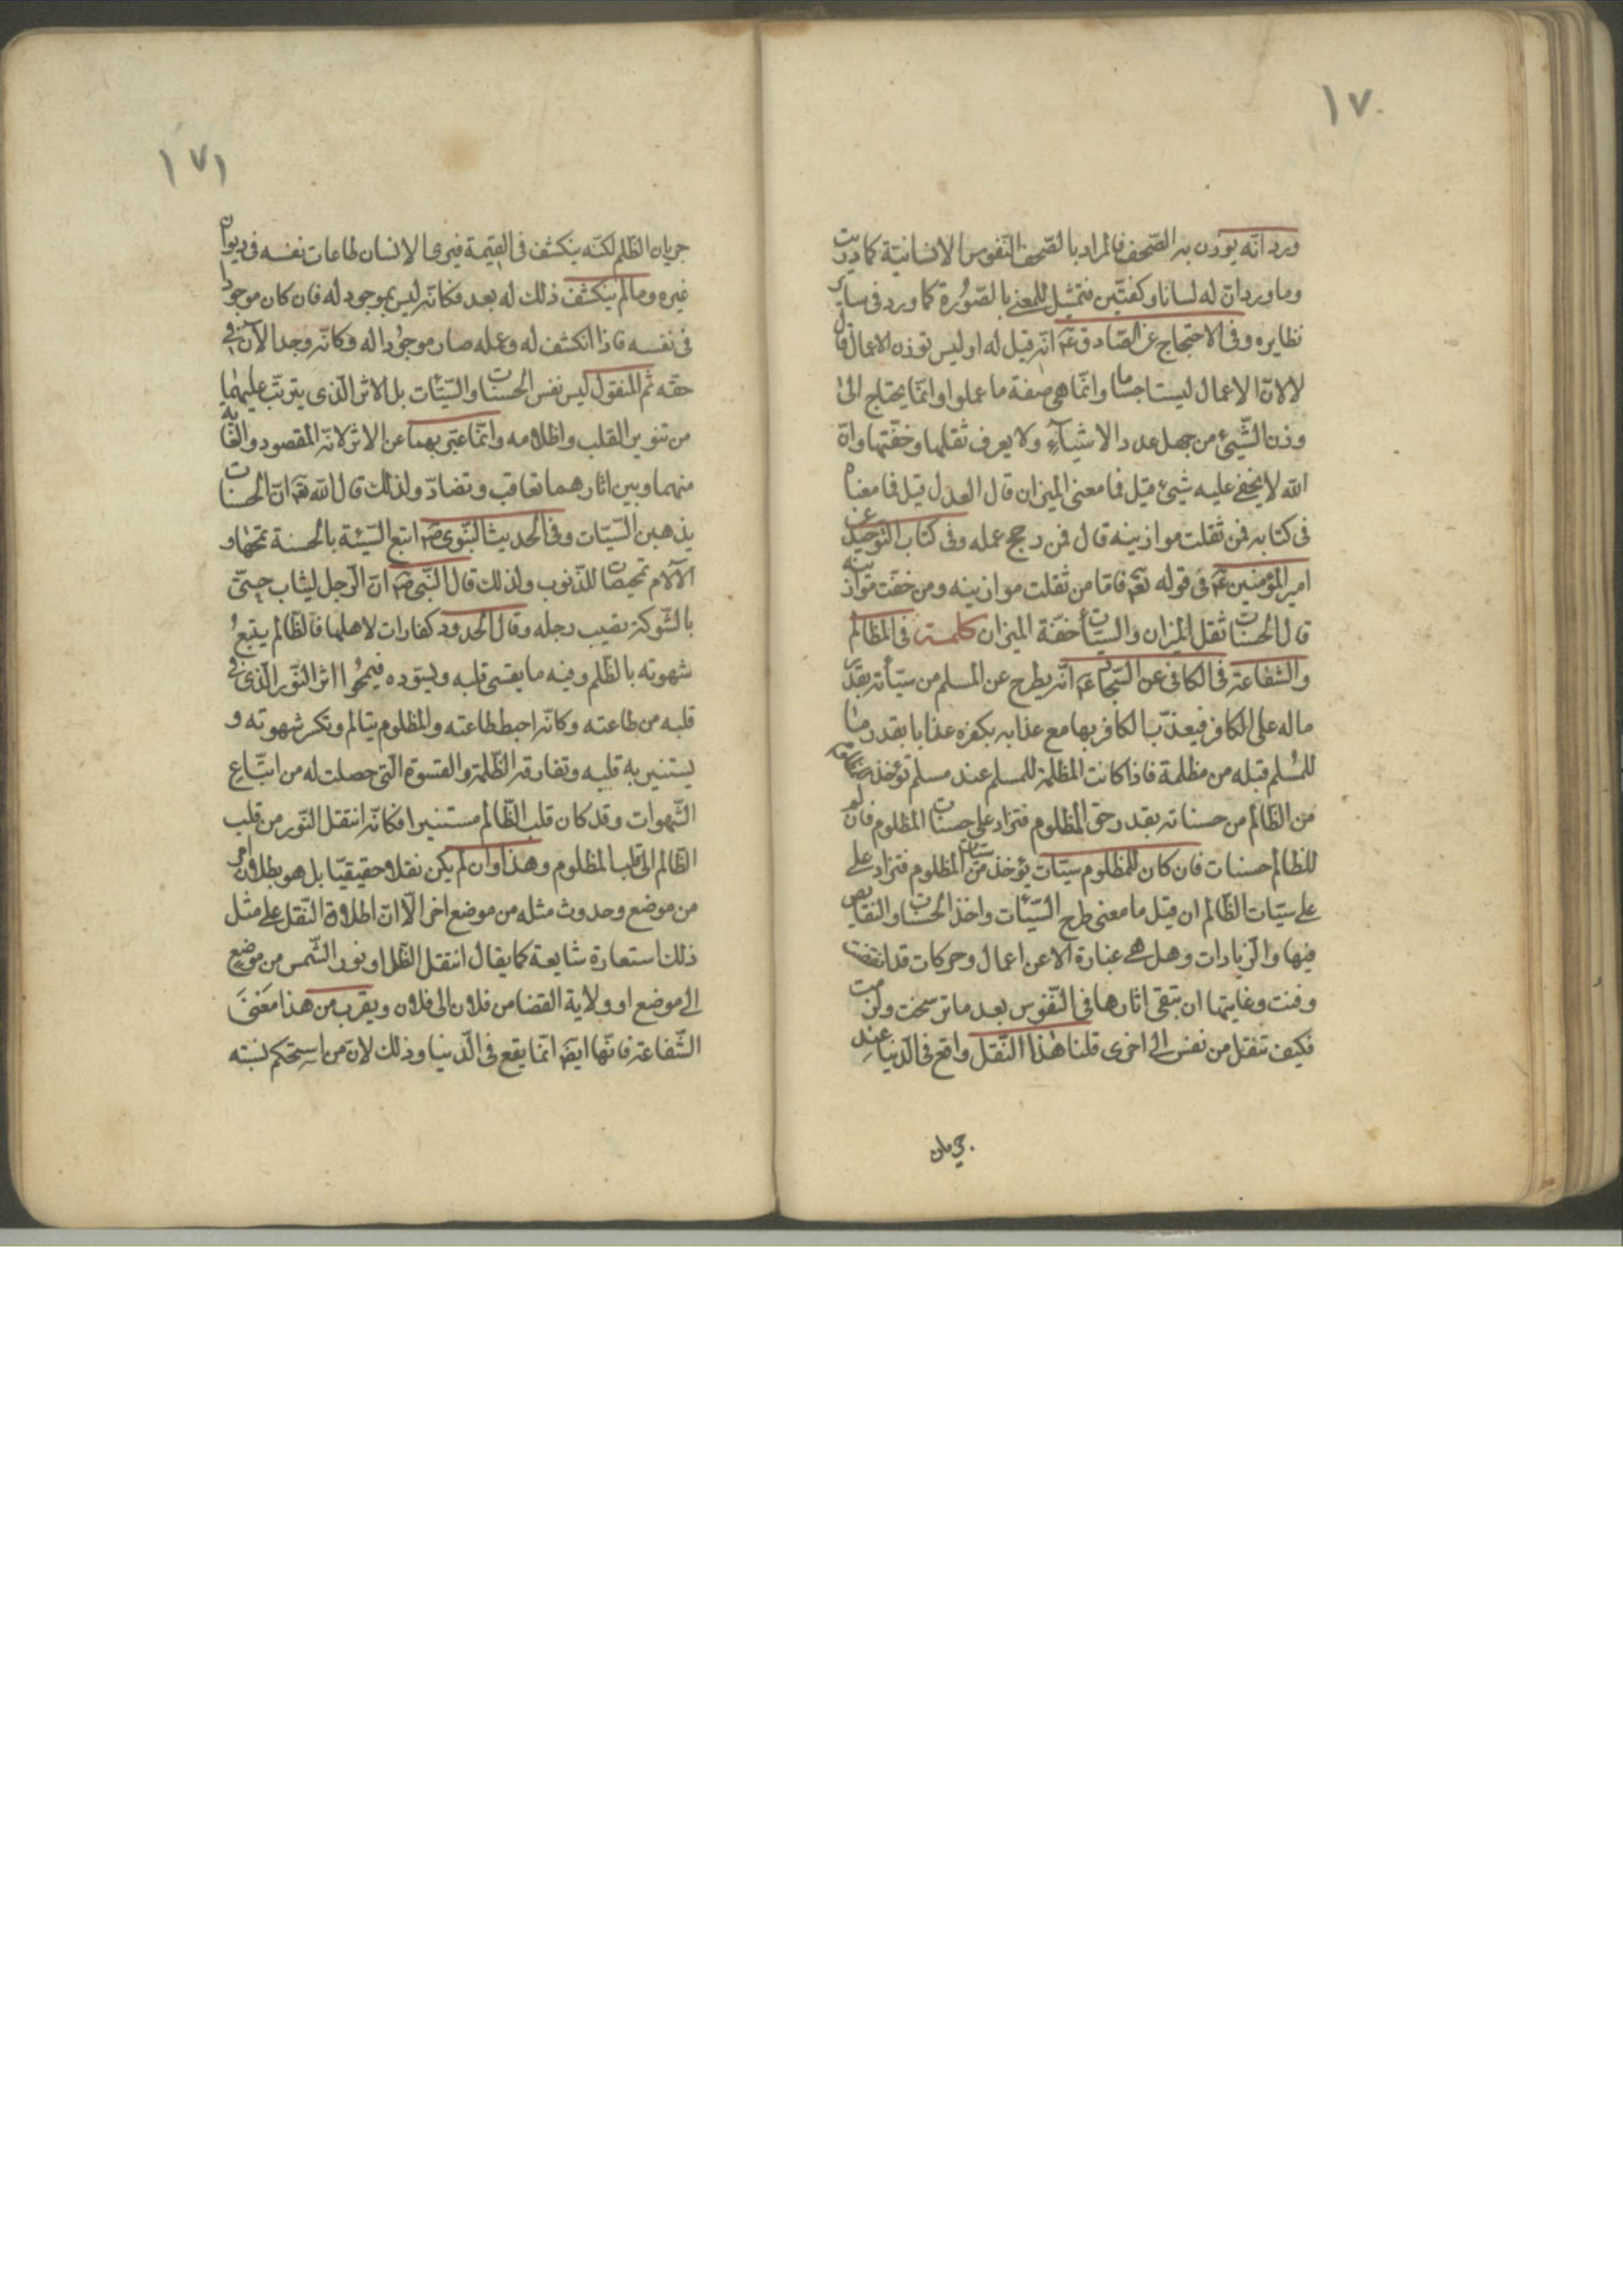 ١٧٠
ورد انّه يوزن به الصّحف فالمراد بالصّحف النّفوس الانسانيّة كما دريت
وما ورد انّ له لسانا وكفّتين فتمثيل للمعنى بالصّورة كما ورد فى ساير
نظايره وفى الاحتجاج عن الصّادق عم انّه قيل له اوليس توزن الاعمال قال
لا لانّ الاعمال ليست اجساما وانّما هى صفة ما عملوا وانّما يحتاج الى
وزن الشّيئ من جهل عدد الاشيآء ولا يعرف ثقلها وخفّتها وانّ
الله لا يخفى عليه شيئ قيل فما معنى الميزان قال العدل قيل فما معناه
فى كتابه فمن ثقلت موازينه قال فمن رجح عمله وفى كتاب التوحيد عن
امير المؤمنين عم فى قوله تعم فامّا من ثقلت موازينه ومن خفّت موازينه
قال الحسنات ثقل الميزان والسيّئات خفّة الميزان كلمة فى المظالم
والشفاعة فى الكافى عن السّجّاد عم انّه يطرح عن المسلم من سيّأته بقدر
ماله على الكافر فيعذّب الكافر بها مع عذابه بكفره عذابا بقدر ما
للمسلم قبله من مظلمة فاذا كانت المظلمة للمسلم عند مسلم تؤخذ
من الظالم من حسناته بقدر حق المظلوم فتزاد على حسنات المظلوم فان لم
للظالم حسنات فان كان للمظلوم سيّئات يؤخذ من سيّئات المظلوم فتزاد على
على سيّئات الظّالم ان قيل ما معنى طرح السّيّئات واخذ الحسنات والنقايص
فيها والزيادات وهل هى عبارة الا عن اعمال وحركات قد انقضت
وفنت وغايتها ان تبقى اثارها فى النّفوس بعد ما ترسّخت ولزمت
فكيف تنقل من نفس الى اخرى قلنا هذا النّقل واقع فى الدّنيا عند
جريان
١٧١
جريان الظّلم لكنّه ينكشف فى القيمة فيرى الانسان طاعات نفسه فى ديوان
غيره وما لم ينكشف ذلك له بعد فكانّه ليس بموجود له فان كان موجودا
فى نفسه فاذا انكشف له وعلمه صار موجودا له وكانّه وجد الآن فى
حقّه ثم المنقول ليس نفس الحسنات والسّيّئات بل الاثر الّذى يترتّب عليهما
من تنوير القلب واظلامه وانّما عبّر بهما عن الاثر لانّه المقصود والغاية
منهما وبين اثارهما تعاقب وتضادّ ولذلك قال الله تعم انّ الحسنات
يذهبن السّيّئات وفى الحديث النّبوى صم اتبع السّيّئة بالحسنة تمحها و
الآلام تمحيصات للذّنوب ولذلك قال النّبى صم انّ الرّجل ليثاب حتّى
بالشّوكة تصيب رجله وقال الحدود كفارات لاهلها فالظّالم يتبع
شهوته بالظّلم وفيه ما يقسى قلبه ويسوّده فيمحوا اثر النّور الّذى فى
قلبه من طاعته وكانّه احبط طاعته والمظلوم يتالم وتكسر شهوته و
يستنير به قلبه وتفارقه الظّلمة والقسوة الّتى حصلت له من اتّباع
الشّهوات وقد كان قلب الظّالم مستنيرا فكانّه انتقل النّور من قلب
الظّالم الى قلب المظلوم وهذا وان لم يكن نقلا حقيقيّا بل هو بطلان امر
من موضع وحدوث مثله من موضع اخر الّا انّ اطلاق النّقل على مثل
ذلك استعارة شايعة كما يقال انتقل الظّل او نور الشّمس من موضع
الى موضع او ولاية القضا من فلان الى فلان ويقرب من هذا معنى
الشّفاعة فانّها ايضم انّما يقع فى الدّنيا وذلك لانّ من استحكم نسبته